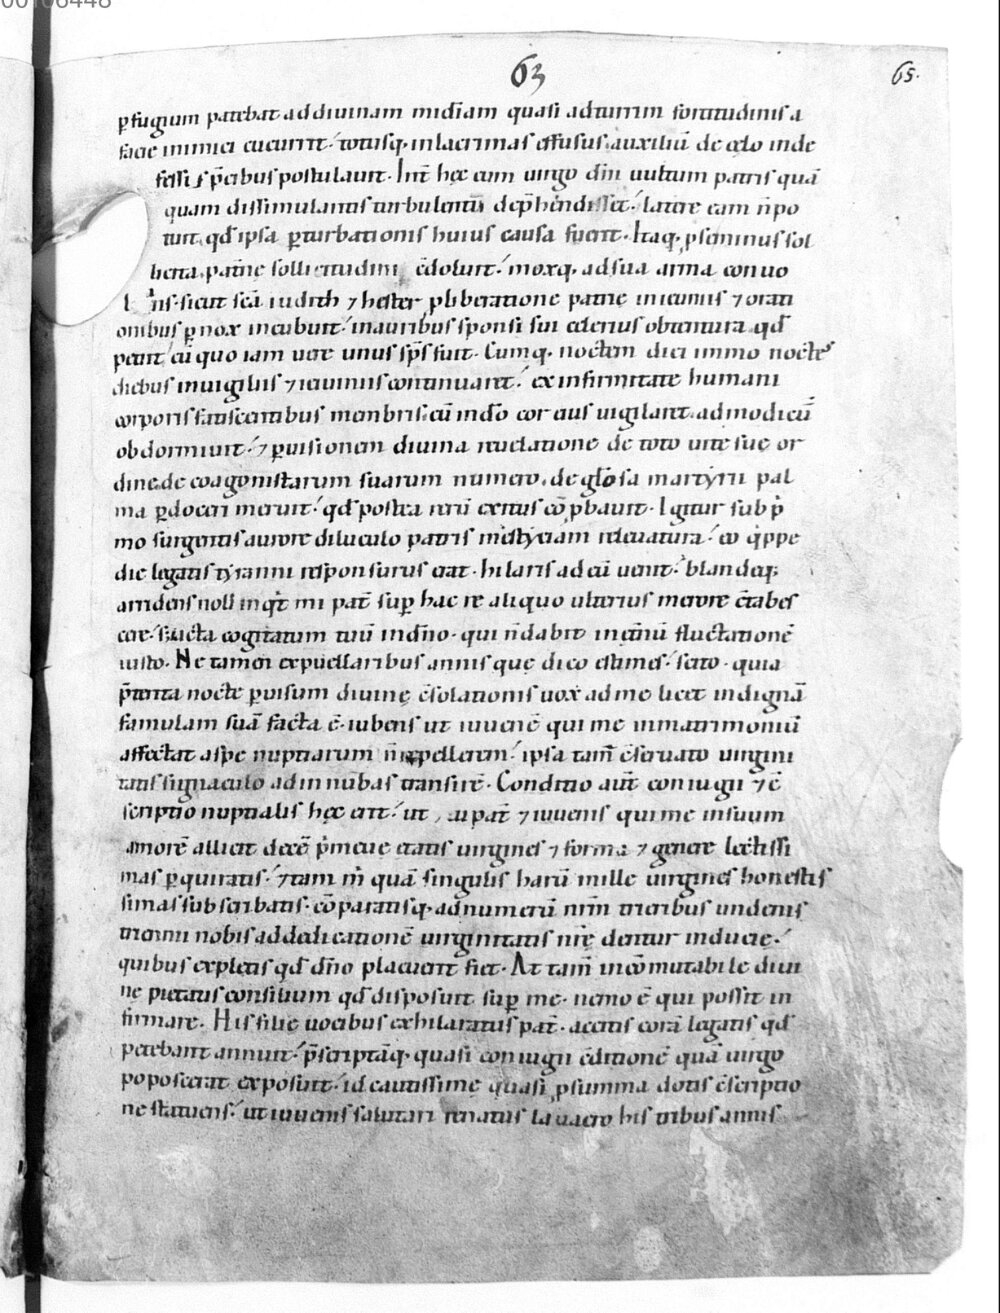 00106448
63
65.
ꝑfugium patebat ad diuinam misc̄diam quasi ad turrim fortitudinis a
facie inimici cucurrit. totusq; in lacrimas effusus. auxiliū de cęlo inde
fessis p̄cibus postulauit. Int̄ hęc cum uirgo dn̄i uultum patris quā
quam dissimulantis turbulentū dep̄hendisset. latere eam n̄ po
tuit. qđ ipsa ꝑturbationis huius causa fuerit. Itaq; ꝓ seminus sol
licita. patnę sollicitudini c̄doluit. moxq; ad sua arma conuo
lans. sicut sc̄a iudith ⁊ hester ꝓ liberatione patrię in ieiuniis ⁊ orati
onibus ꝑnox incubuit. in auribus sponsi sui celerius obtentura qđ
petiit. cū quo iam uere unus sp̄s fuit. Cumq; noctem diei immo noctes
diebus inuigiliis ⁊ ieiuniis continuaret. ex infirmitate humani
corporis fatiscentibus menbris. cū in dn̄o cor eius uigilaret. ad modicū
obdormiuit. ⁊ ꝑ uisionem diuina reuelatione de toto uite suę or
dine. de coagonistarum suarum numero. de glōsa martyrii pal
ma ꝑdoceri meruit. qđ postea rerū exitus cōꝓbauit. Igitur sub p̓
mo surgentis aurore diluculo patris męsticiam releuatura. eo q̓ppe
die legatis tyranni responsurus erat. hilaris ad eū uenit. blandeq;
arridens noli inqt̓ mi pat̄ suꝑ hac re aliquo ulterius merore c̄tabes
cere. iacta cogitatum tuū in dn̄o. qui n̄ dabit in et̄nū fluctationē
iusto. Ne tamen ex puellaribus annis quę dico estimes. scito. quia
p̄terita nocte ꝑ uisum diuinę c̄solationis uox ad me licet indignā
famulam suā facta ē. iubens ut iuuenē qui me in matrimoniū
affectat a spe nuptiarum n̄ repellerem. ipsa tam̄ c̄seruato uirgini
tatis signaculo ad innūbas transirē. Conditio aut̄ coniugii ⁊ c̄
scriptio nuptialis hęc erit. ut tu pat̄ ⁊ iuuenis qui me in suum
amorē allicit decē p̓meue etatis uirgines ⁊ forma ⁊ genere lectissi
mas ꝑquiratis. ⁊ tam m̓ quā singulis harū mille uirgines honestis
simas subscribatis. cōparatisq; ad numerū nr̄m trieribus undenis
triennii nobis ad dedicationē uirginitatis nr̄ę dentur inducie.
quibus expletis qđ dn̄o placuerit fiet. At tam̄ incōmutabile diui
nę pietatis consilium qđ disposuit suꝑ me. nemo ē qui possit in
firmare. His filię uocibus exhilaratus pat̄. accitis corā legatis qđ
petebant annuit. p̄scriptāq; quasi coniugii c̄ditionē quā uirgo
poposcerat exposuit. id cautissime quasi ꝓ summa dotis c̄scriptio
ne statuens. ut iuuenis salutari renatus lauacro his tribus annis